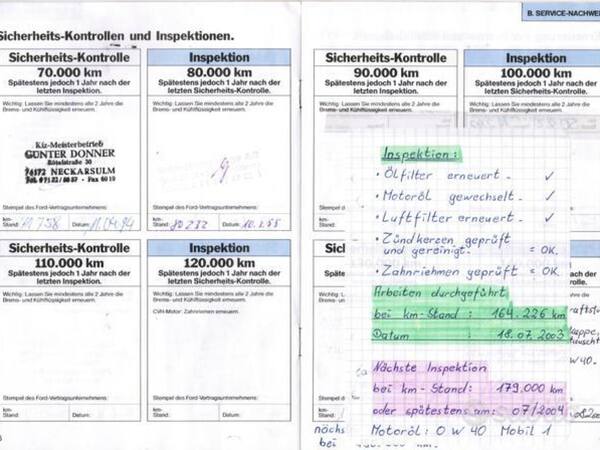 B. SERVICE-NACHWE
Sicherheits-Kontrollen und Inspektionen.
Sicherheits-Kontrolle
70.000 km
Spätestens jedoch 1 Jahr nach der
letzten Inspektion.
Wichtig: Lassen Sie mindestens alle 2 Jahre die
Brems- und Kühlflüssigkeit erneuern.
Kfz-Meisterbetrieb
GÜNTER DONNER
74172 NECKARSULM
Stempel des Ford-Vertragsunternehmens:
km-
Stand:
Datum:
Inspektion
80.000 km
Spätestens jedoch 1 Jahr nach der
letzten Sicherheits-Kontrolle.
Wichtig: Lassen Sie mindestens alle 2 Jahre die
Brems- und Kühlflüssigkeit erneuern.
Stempel des Ford-Vertragsunternehmens:
km-
Stand:
Datum:
Sicherheits-Kontrolle
90.000 km
Spätestens jedoch 1 Jahr nach der
letzten Inspektion.
Wichtig: Lassen Sie mindestens alle 2 Jahre die
Brems- und Kühlflüssigkeit erneuern.
Inspektion
100.000 km
Spätestens jedoch 1 Jahr nach der
letzten Sicherheits-Kontrolle.
Wichtig: Lassen Sie mindestens alle 2 Jahre die
Brems- und Kühlflüssigkeit erneuern.
Sicherheits-Kontrolle
110.000 km
Spätestens jedoch 1 Jahr nach der
letzten Inspektion.
Wichtig: Lassen Sie mindestens alle 2 Jahre die
Brems- und Kühlflüssigkeit erneuern.
Stempel des Ford-Vertragsunternehmens:
km-
Stand:
Datum:
Inspektion
120.000 km
Spätestens jedoch 1 Jahr nach der
letzten Sicherheits-Kontrolle.
Wichtig: Lassen Sie mindestens alle 2 Jahre die
Brems- und Kühlflüssigkeit erneuern.
CVH-Motor: Zahnriemen erneuern.
Stempel des Ford-Vertragsunternehmens:
km-
Stand:
Datum:
Inspektion:
• Ölfilter erneuert - ✓
• Motoröl gewechselt - ✓
• Luftfilter erneuert - ✓
• Zündkerzen geprüft
und gereinigt. = OK.
• Zahnriemen geprüft = OK.
Arbeiten durchgeführt
bei km-Stand: 164.226 km
Datum 18.07.2003
Nächste Inspektion
bei km-Stand: 179.000 km
oder spätestens am: 07/2004
Motoröl: 0 W 40 Mobil 1
nächs
bei